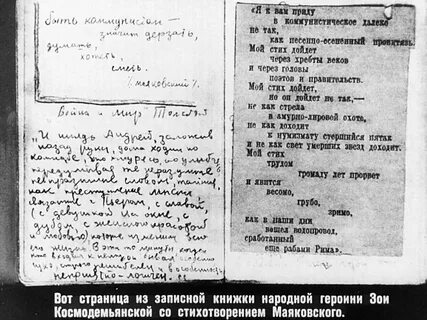 Быть коммунистом —
значит дерзать,
думать,
хотеть,
сметь.
/Маяковский/.
Война и мир Толстой
"И князь Андрей, заложив
назад руки, долго ходил по
комнате, то хмурясь, то улыбаясь
передумывая те неразумные
невыразимые словом, тайные,
как преступление мысли
связанные с Пьером, с славой,
с девушкой на окне, с
дубом, с женской красотой
любовью, которые изменили всю
его жизнь. В эти то минуты когда
кто входил к нему он бывал особенно
сухо, строго решителен и в особенности
неприятно-логичен."
«Я к вам приду
в коммунистическое далеко
не так,
как песенно-есененный провитязь.
Мой стих дойдет
через хребты веков
и через головы
поэтов и правительств.
Мой стих дойдет,
но он дойдет не так,—
не как стрела
в амурно-лировой охоте,
не как доходит
к нумизмату стершийся пятак
и не как свет умерших звезд доходит.
Мой стих
трудом
громаду лет прорвет
и явится
весомо,
грубо,
зримо,
как в наши дни
вошел водопровод,
сработанный
еще рабами Рима».
Вот страница из записной книжки народной героини Зои
Космодемьянской со стихотворением Маяковского.